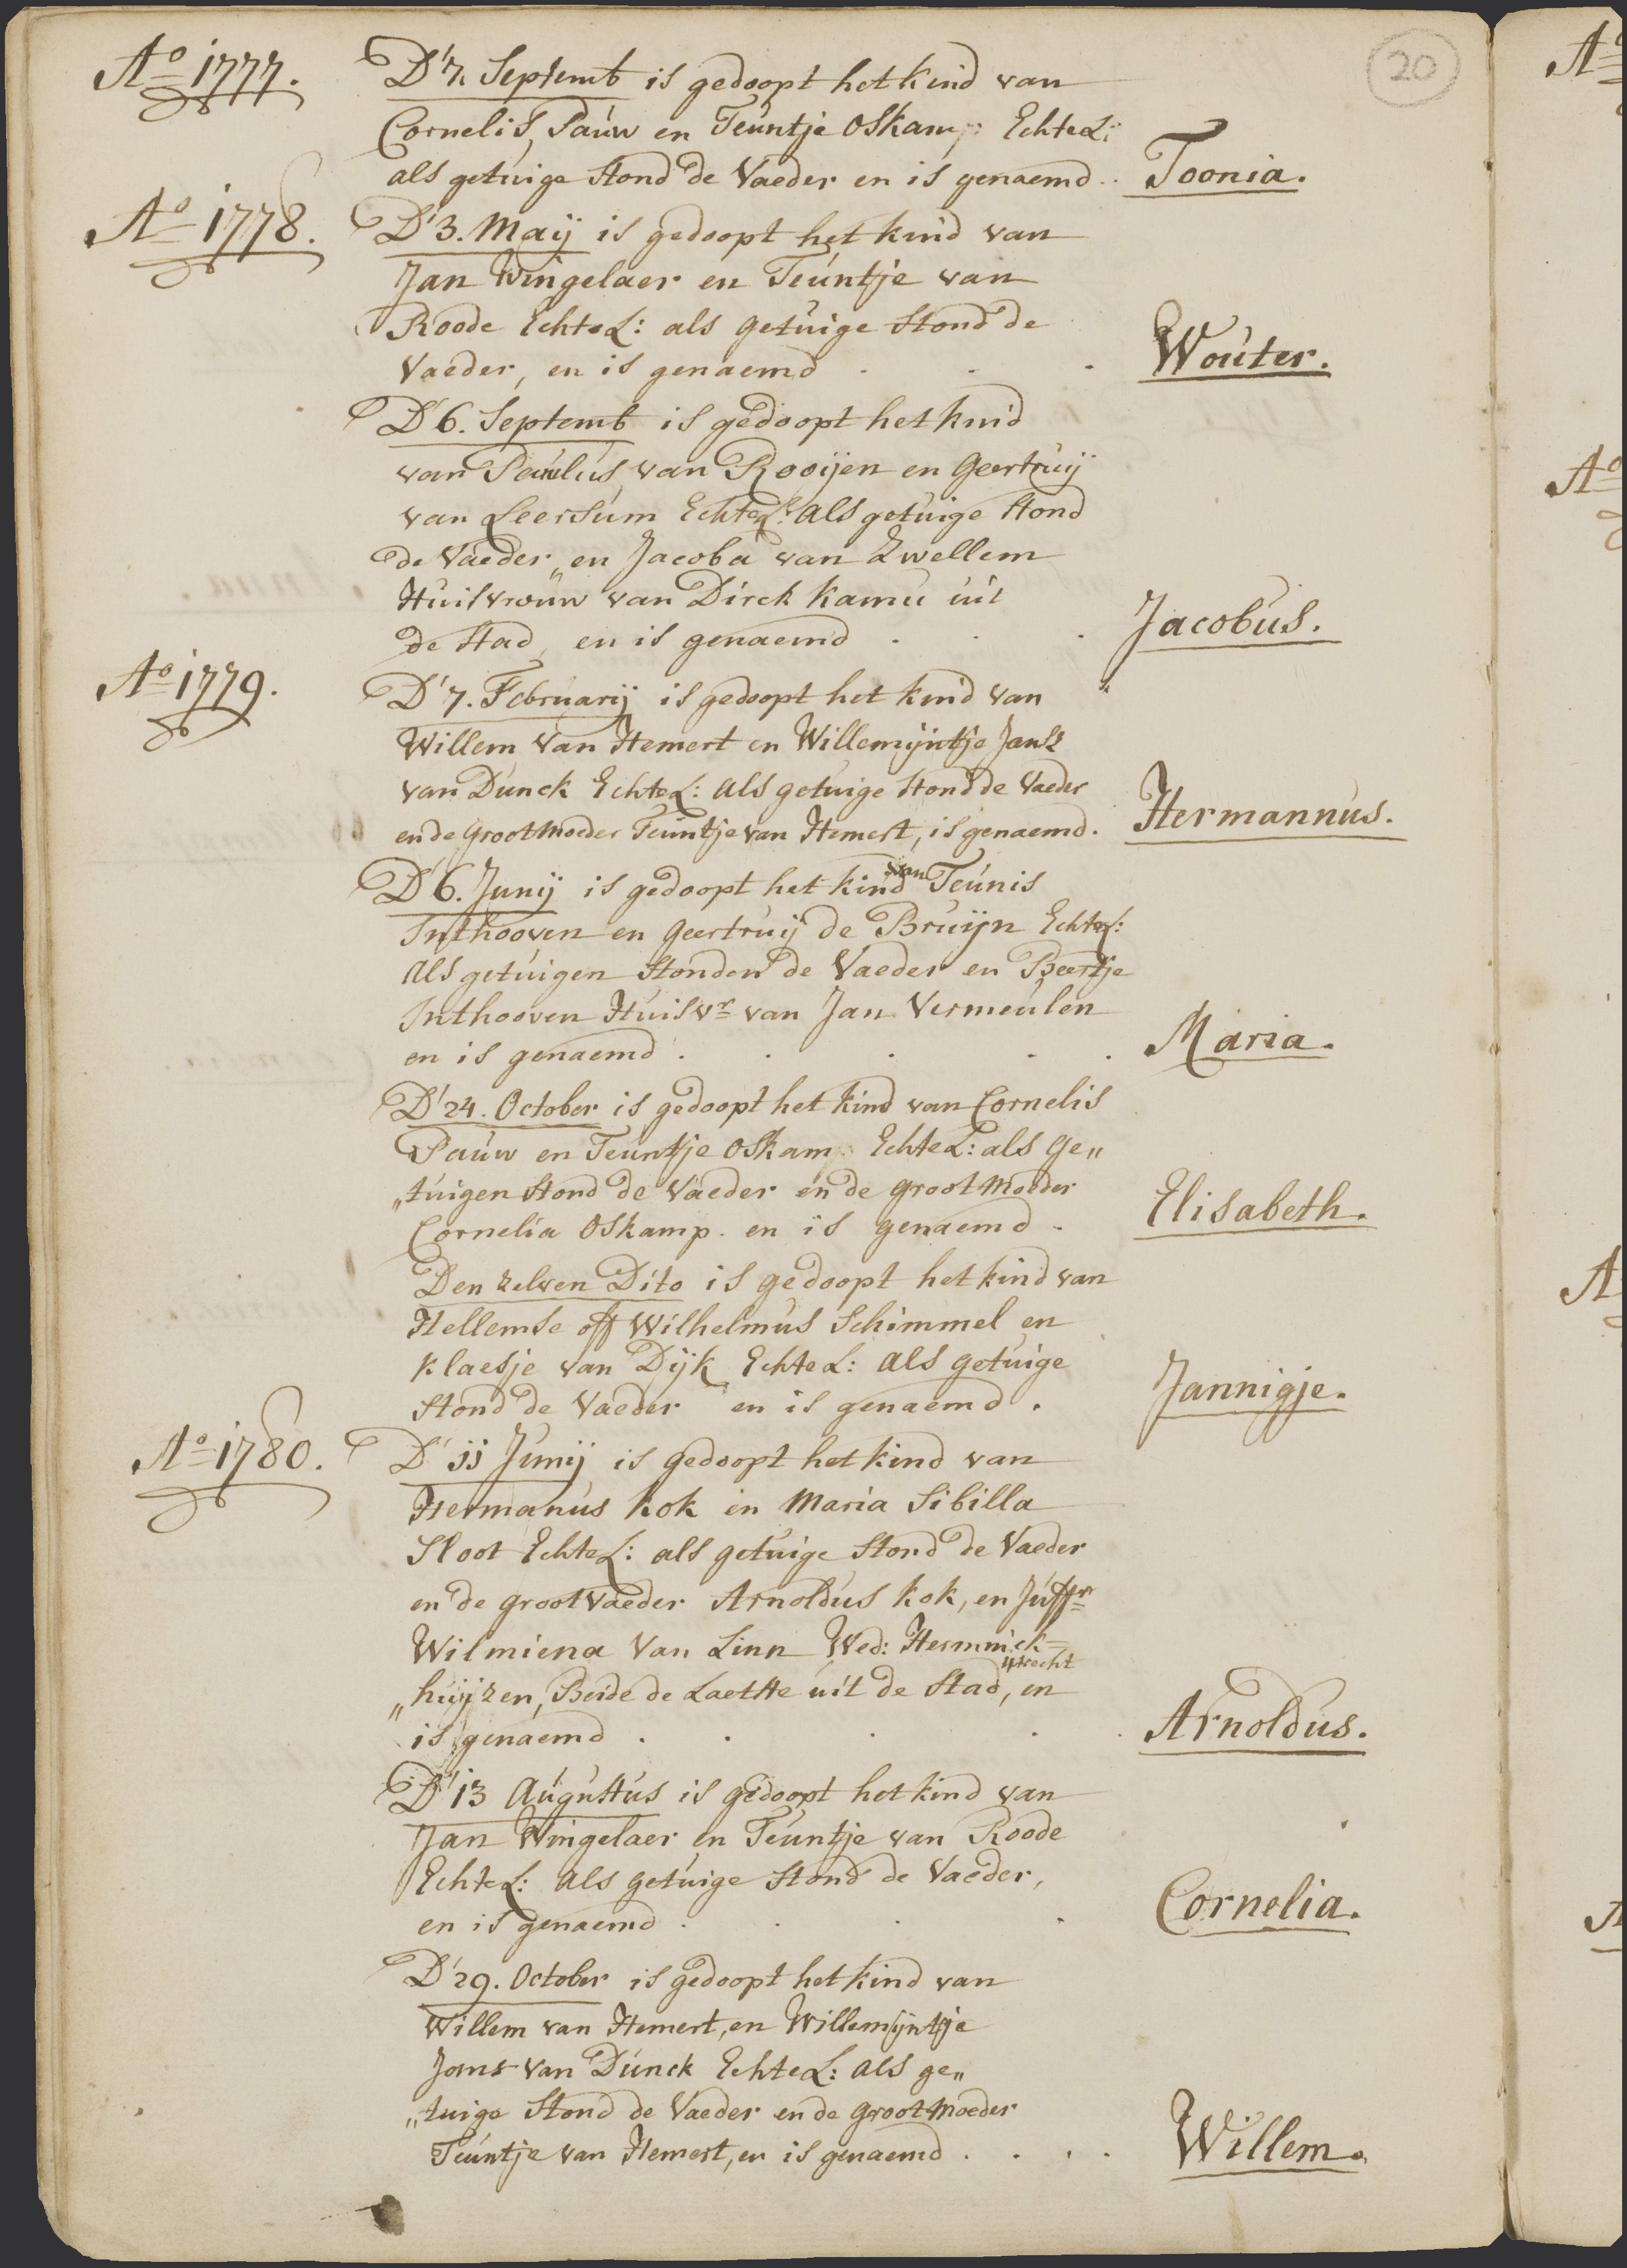 20
Ao 1777.
D' 7. Septemb is gedoopt het kind van
Cornelis Pauw en Teuntje Oskamp Echtel:
als getuige stond de Vaeder en is genaemd. Toonia.
Ao 1778.
D' 3. Maij is gedoopt het kind van
Jan Wingelaer en Teuntje van
Roode Echtel: als getuige stond de
Vaeder, en is genaemd . . . Wouter.
D' 6. Septemb is gedoopt het kind
van Paulus van Rooijen en Geertruij
van Leersum Echtel: als getuige stond
de Vaeder, en Jacoba van Zwellem
Huisvrouw van Dirck Kamu uit
de Stad, en is genaemd . . . Jacobus.
Ao 1779.
D' 7. Februarij is gedoopt het kind van
Willem van Hemert en Willemijntje Jans
van Dunck Echtel: als getuige stond de Vaeder
en de Groot Moeder Teuntje van Hemert, is genaemd. Hermannus.
D' 6. Junij is gedoopt het kind van Teunis
Inthooven en Geertruij de Bruijn Echtel:
als getuigen stonden de Vaeder en Beertje
Inthooven Huisvr van Jan Vermeulen
en is genaemd . . . . . Maria.
D' 24. October is gedoopt het kind van Cornelis
Pauw en Teuntje Oskam Echtel: als ge„
„tuigen stond de Vaeder en de groot Moeder
Cornelia Oskamp. en is genaemd . Elisabeth.
Den zelven Dito is gedoopt het kind van
Hellemse off Wilhelmus Schimmel en
Klaesje van Dijk Echtel: als getuige
stond de Vaeder en is genaemd . Jannigje.
Ao 1780.
D' 11 Junij is gedoopt het kind van
Hermanus Kok en Maria Sibilla
Sloot Echtel: als getuige stond de Vaeder
en de grootvaeder Arnoldus Kok, en Juffr
Wilmiena van Linn Wed: Hermnick=
„huijzen, Beide de Laetste uit de Stad utrecht, en
is genaemd . . . . . Arnoldus.
D' 13 Augustus is gedoopt het kind van
Jan Wingelaer en Teuntje van Roode
Echtel: als getuige stond de Vaeder,
en is genaemd . . . . Cornelia.
D' 29. October is gedoopt het kind van
Willem van Hemert, en Willemijntje
Jans van Dunck Echtel: als ge„
„tuige stond de Vaeder en de groot Moeder
Teuntje van Hemert, en is genaemd . . . . Willem.